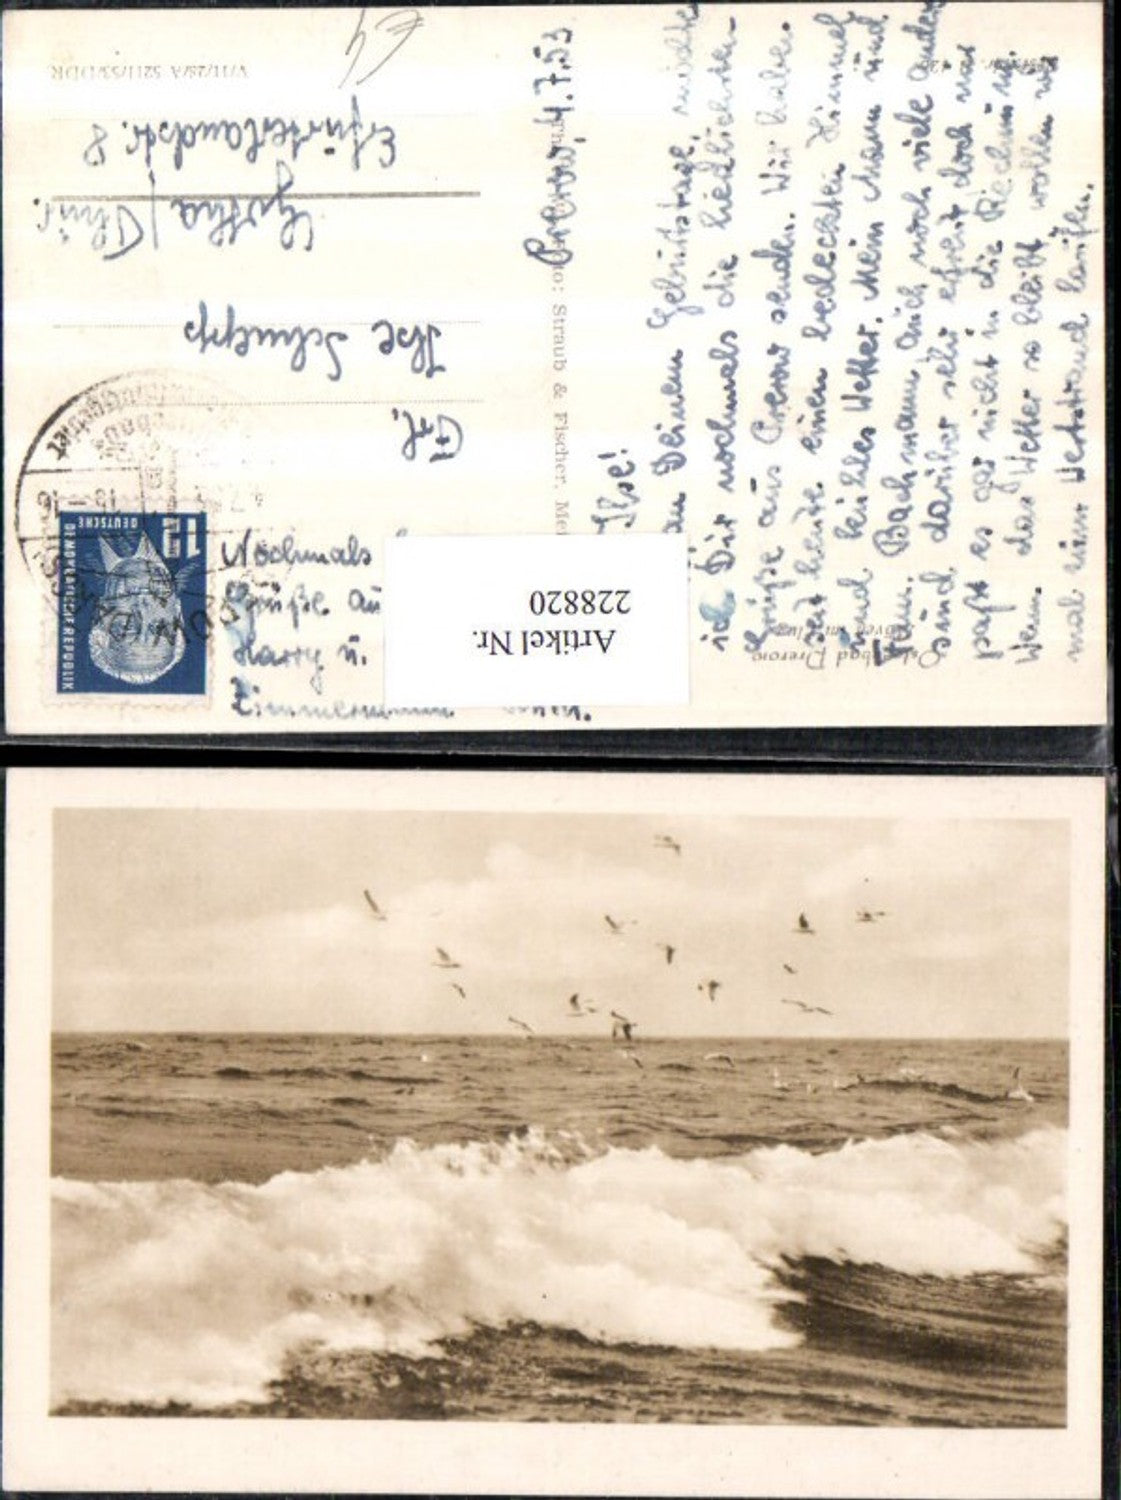 Prerow, 4.7.53
Ilse!
Deinem Geburtstage, möchte
ich Dir nochmals die herzlichsten
Grüße aus Prerow senden. Wir haben
seit heute einen bedeckten Himmel
und kühles Wetter. Mein Mann und
Bachmann auch noch viele andere
sind darüber sehr erfreut doch uns
paßt es gar nicht in die Rechnung.
Wenn das Wetter so bleibt wollen wir
mal zum Weststrand laufen.
Nochmals
Grüße
Harry u.
Zimmermann
Frl.
Ilse Schnepp
Gotha / Thür.
Erfurterlandstr. 8
€4
V/11/28/A 5211/53/DDR
Foto: Straub & Fischer, Mei
Ostseebad Prerow
Artikel Nr.
228820
12
DEUTSCHE
DEMOKRATISCHE REPUBLIK